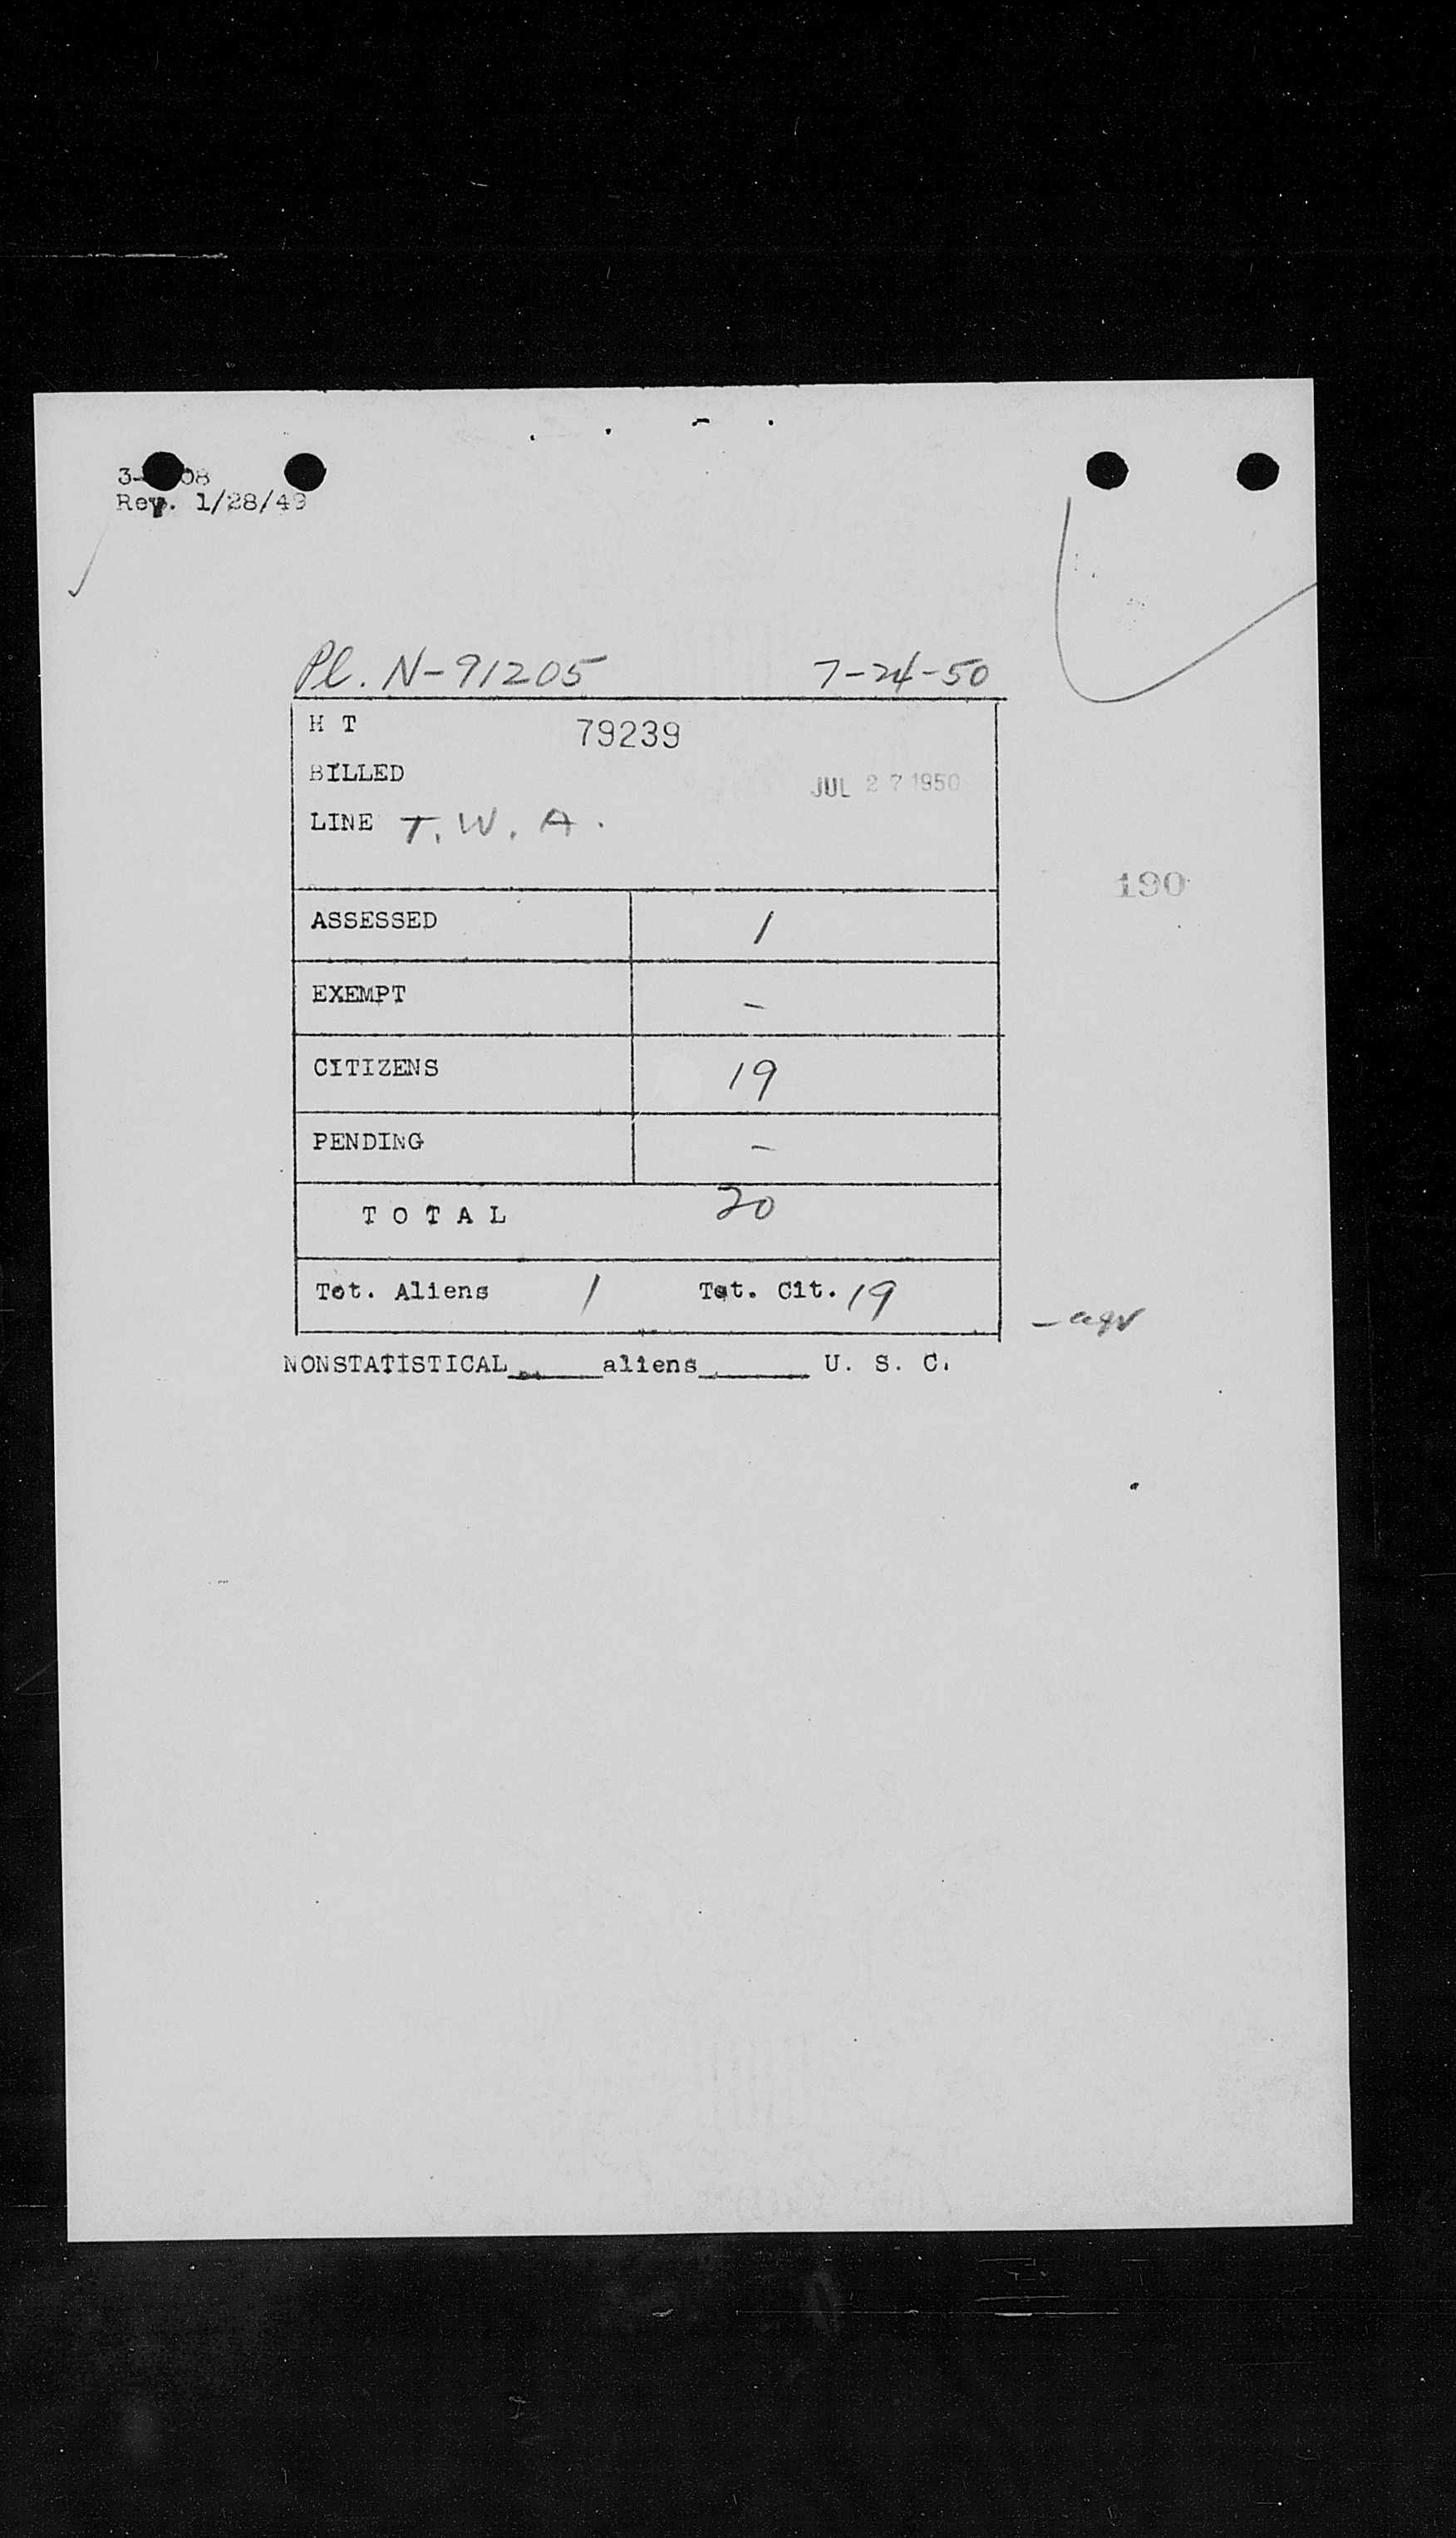 Rev. 1/28/49
Pl. N-91205 7-24-50
H T 79239
BILLED JUL 27 1950
LINE T. W. A.
190
ASSESSED 1
EXEMPT -
CITIZENS 19
PENDING -
T O T A L 20
Tot. Aliens 1 Tot. Cit. 19
NONSTATISTICAL_____aliens______ U. S. C.